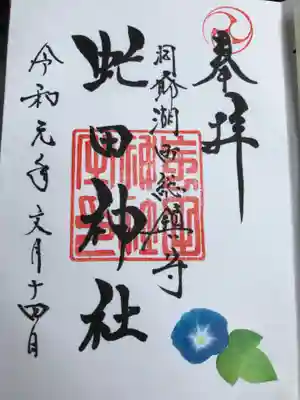 奉拝
洞爺湖西総鎮守
虻田神社
令和元年文月十四日